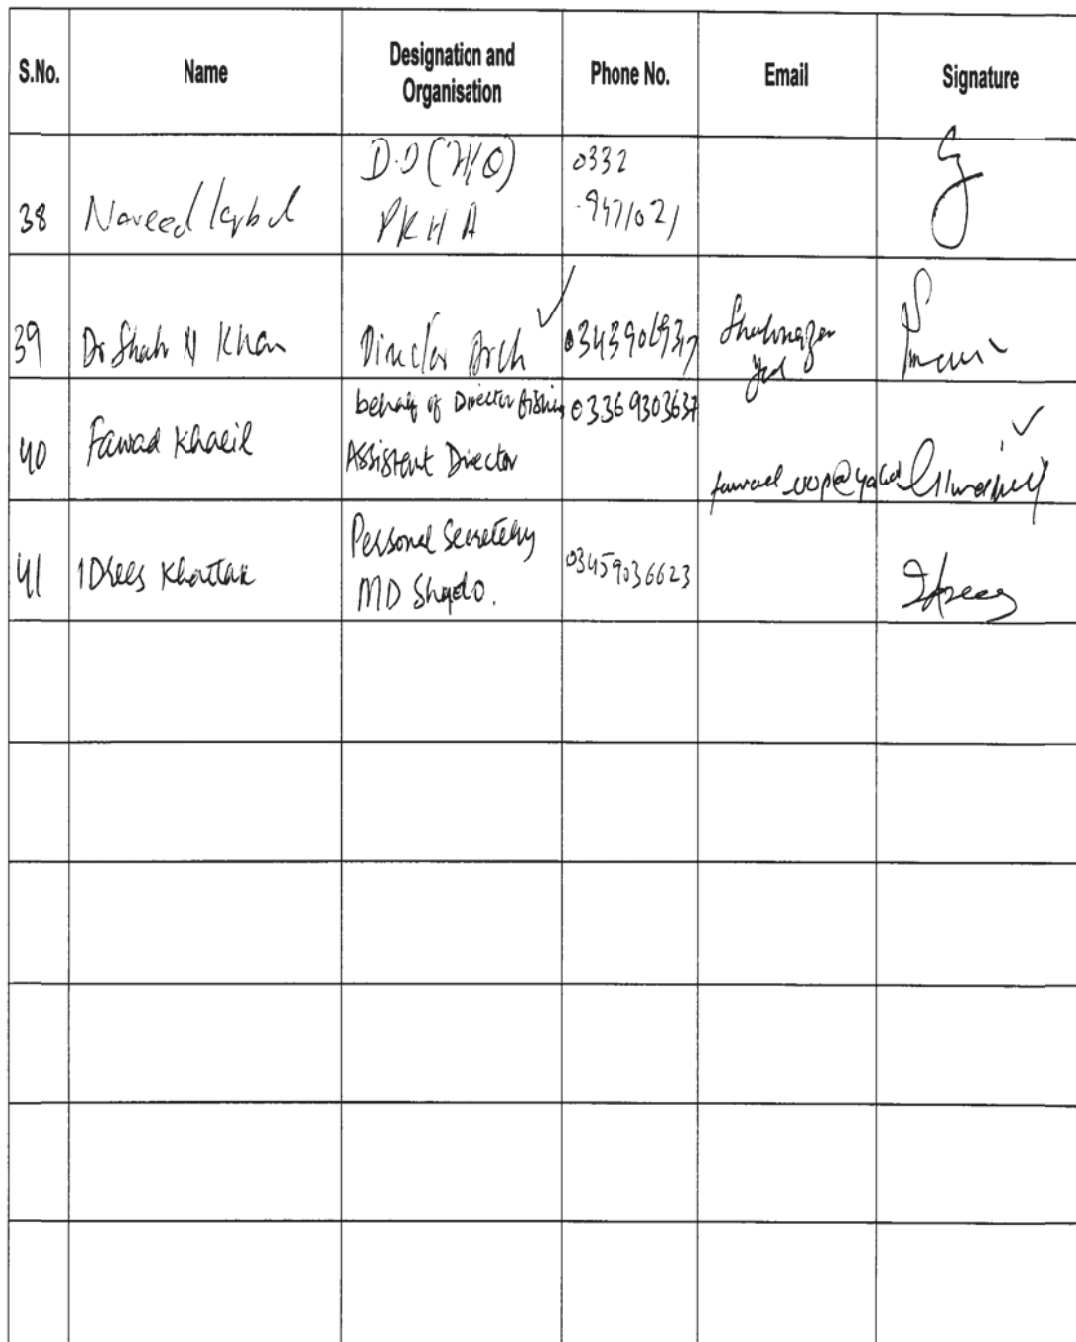 S.No.
Name
Designation and
Organisation
Phone No.
Email
Signature
38
Naveed Iqbal
D.D (H/Q)
PKHA
0332
9471021
39
Dr Shah N Khan
Director Arch
Shahnazar
40
Fawad Khalil
behalf of Director fishing
Assistent Director
03369303637
41
IDrees Khattak
Personal Secretary
MD Shydo.
03459036623
Idrees